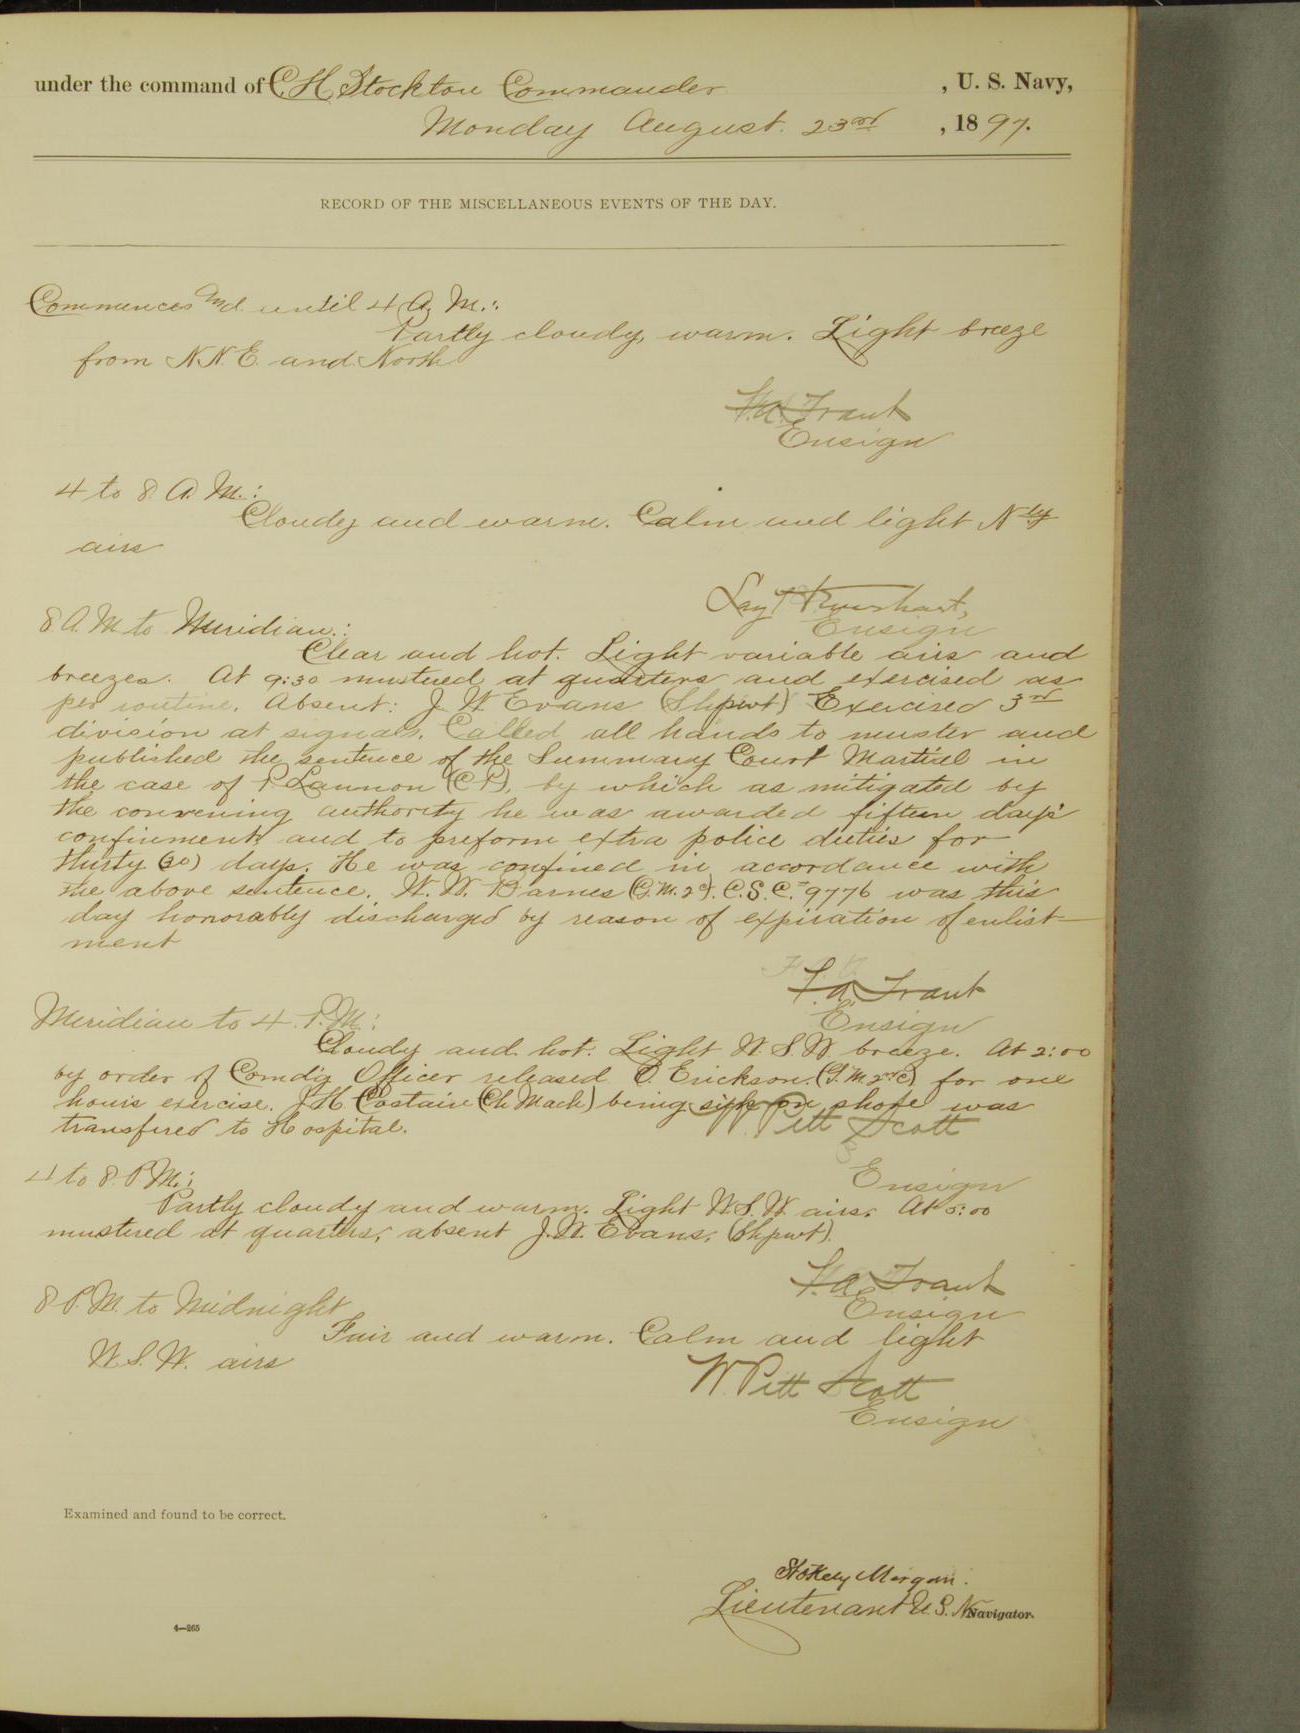 under the command of C H Stockton Commander , U. S. Navy,
Monday August. 23rd , 1897.
RECORD OF THE MISCELLANEOUS EVENTS OF THE DAY.
Commences and until 4 A. M.:
Partly cloudy, warm. Light breeze
from N.N.E. and North
Ensign
4 to 8 A. M.:
Cloudy and warm. Calm and light Nly
airs
Ensign
8 A.M to Meridian.:
Clear and hot. Light variable airs and
breezes. At 9:30 mustered at quarters and exercised as
per routine. Absent: J. W. Evans (Shpwt) Exercised 3rd
division at signals. Called all hands to muster and
published the sentence of the Summary Court Martial in
the case of P Lannon (C P), by which as mitigated by
the convening authority he was awarded fifteen days'
confinement and to preform extra police duties for
thirty (30) days. He was confined in accordance with
the above sentence. W. W. Barnes (G.M. 2c). C.S.C. 9776 was this
day honorably discharged by reason of expiration of enlist-
ment
F.A. Traut
Ensign
Meridian to 4 P.M.:
Cloudy and hot. Light W.S.W. breeze. At 2:00
by order of Comd'g Officer released O. Erickson. (G.M. 2nd C) for one
hours exercise. J H Costaire (Ch Mach) being sick on shore was
transfered to Hospital.
W. Pitt Scott
Ensign
4 to 8. P.M.:
Partly cloudy and warm. Light W.S.W. airs. At 5:00
mustered at quarters, absent J.W. Evans. (Shpwt).
F.A. Traut
Ensign
8 P.M. to Midnight
Fair and warm. Calm and light
W.S.W. airs
W. Pitt Scott
Ensign
Examined and found to be correct.
Stokely Morgan.
Lieutenant U.S.N. Navigator.
4—265